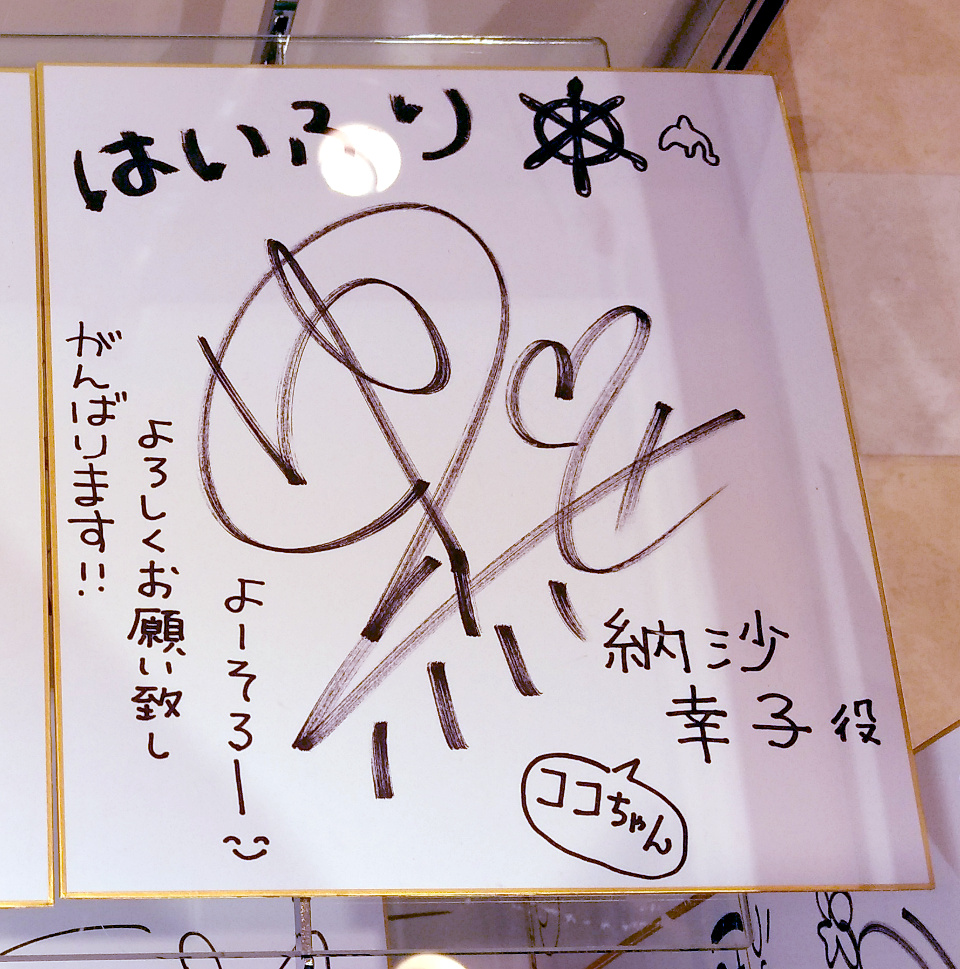 はいふり
納沙
幸子役
ココちゃん
よーそろー
よろしくお願い致し
がんばります!!